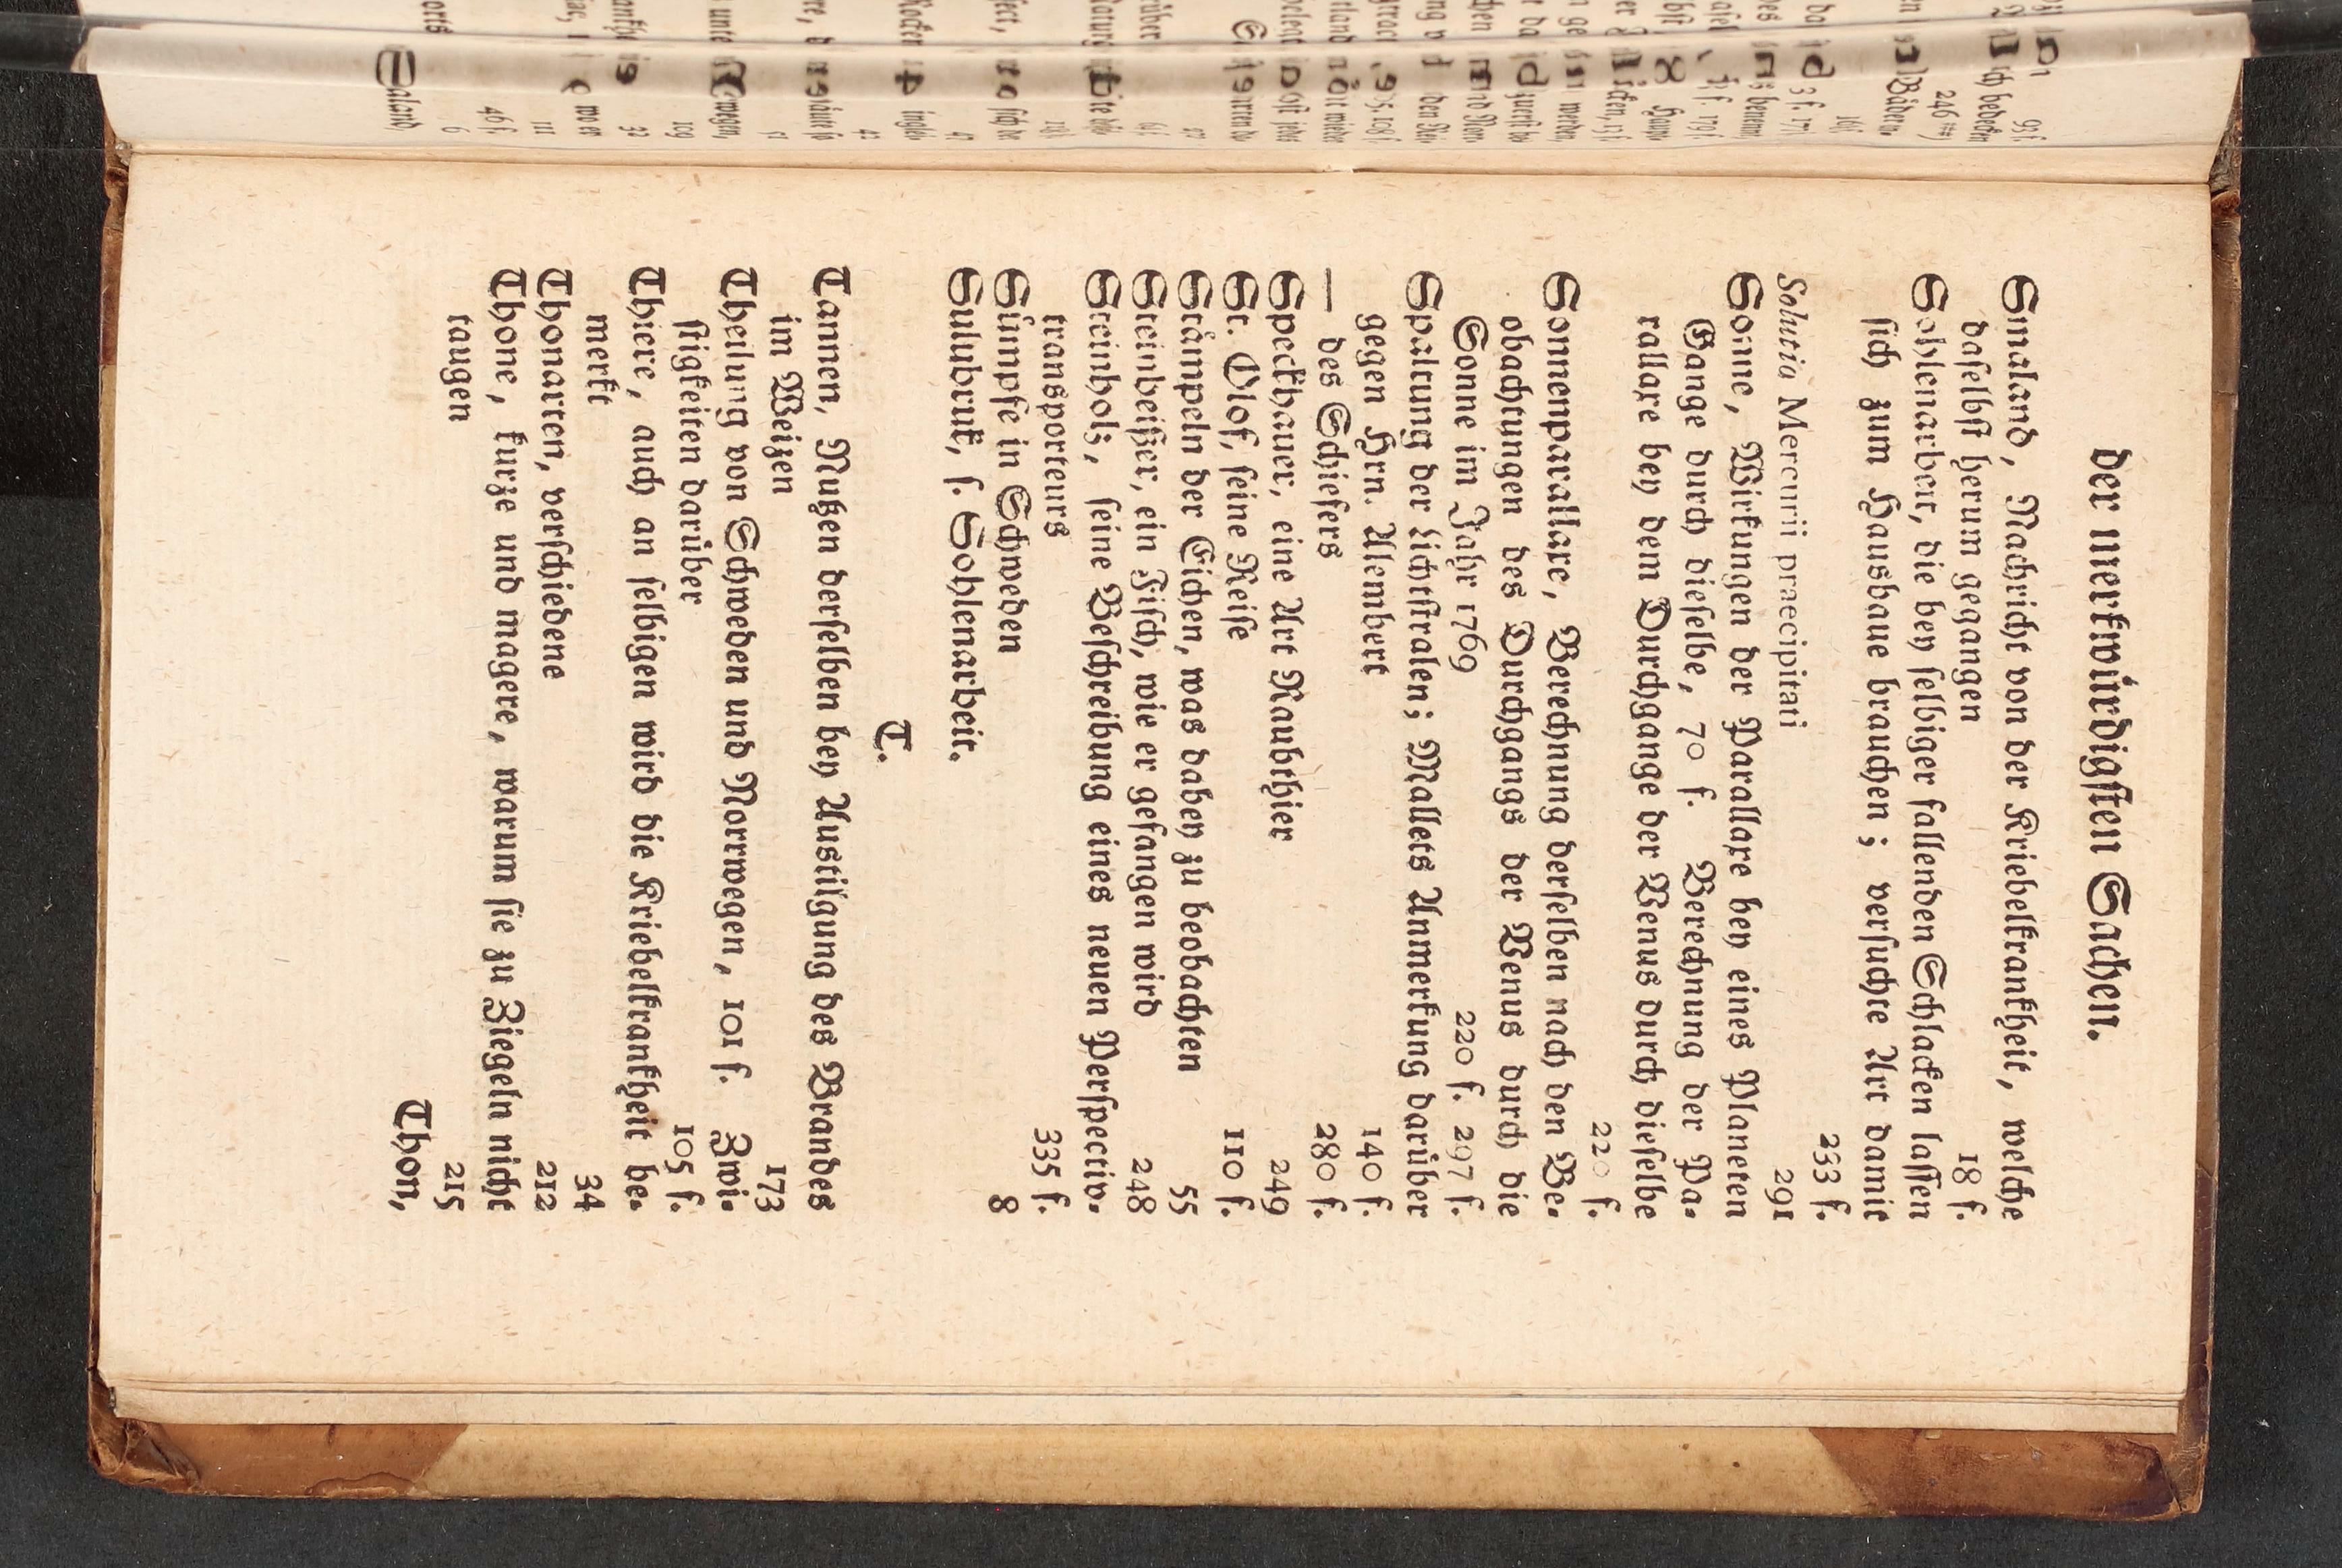 der merkwürdigsten Sachen.
Smaland, Nachricht von der Kriebelkrankheit, welche
daselbst herum gegangen 18 f.
Sohlenarbeit, die bey selbiger fallenden Schlacken lassen
sich zum Hausbaue brauchen; versuchte Art damit
233 f.
Solutio Mercurii praecipitati 291
Sonne, Wirkungen der Parallaxe bey eines Planeten
Gange durch dieselbe, 70 f. Berechnung der Pa-
rallaxe bey dem Durchgange der Venus durch dieselbe
220 f.
Sonnenparallaxe, Berechnung derselben nach den Be-
obachtungen des Durchgangs der Venus durch die
Sonne im Jahr 1769 220 f. 297 f.
Spaltung der Lichtstralen; Mallets Anmerkung darüber
gegen Hrn. Alembert 140 f.
— des Schiefers 280 f.
Speckhauer, eine Art Raubthier 249
St. Olof, seine Reise 110 f.
Stämpeln der Eichen, was dabey zu beobachten 55
Steinbeißer, ein Fisch, wie er gefangen wird 248
Steinholz, seine Beschreibung eines neuen Perspectiv-
transporteurs 335 f.
Sümpfe in Schweden 8
Sulubruk, s. Sohlenarbeit.
T.
Tannen, Nutzen derselben bey Austilgung des Brandes
im Weizen 173
Theilung von Schweden und Norrwegen, 101 f. Zwi-
stigkeiten darüber 105 f.
Thiere, auch an selbigen wird die Kriebelkrankheit be-
merkt 34
Thonarten, verschiedene 212
Thone, kurze und magere, warum sie zu Ziegeln nicht
taugen 215
Thon,